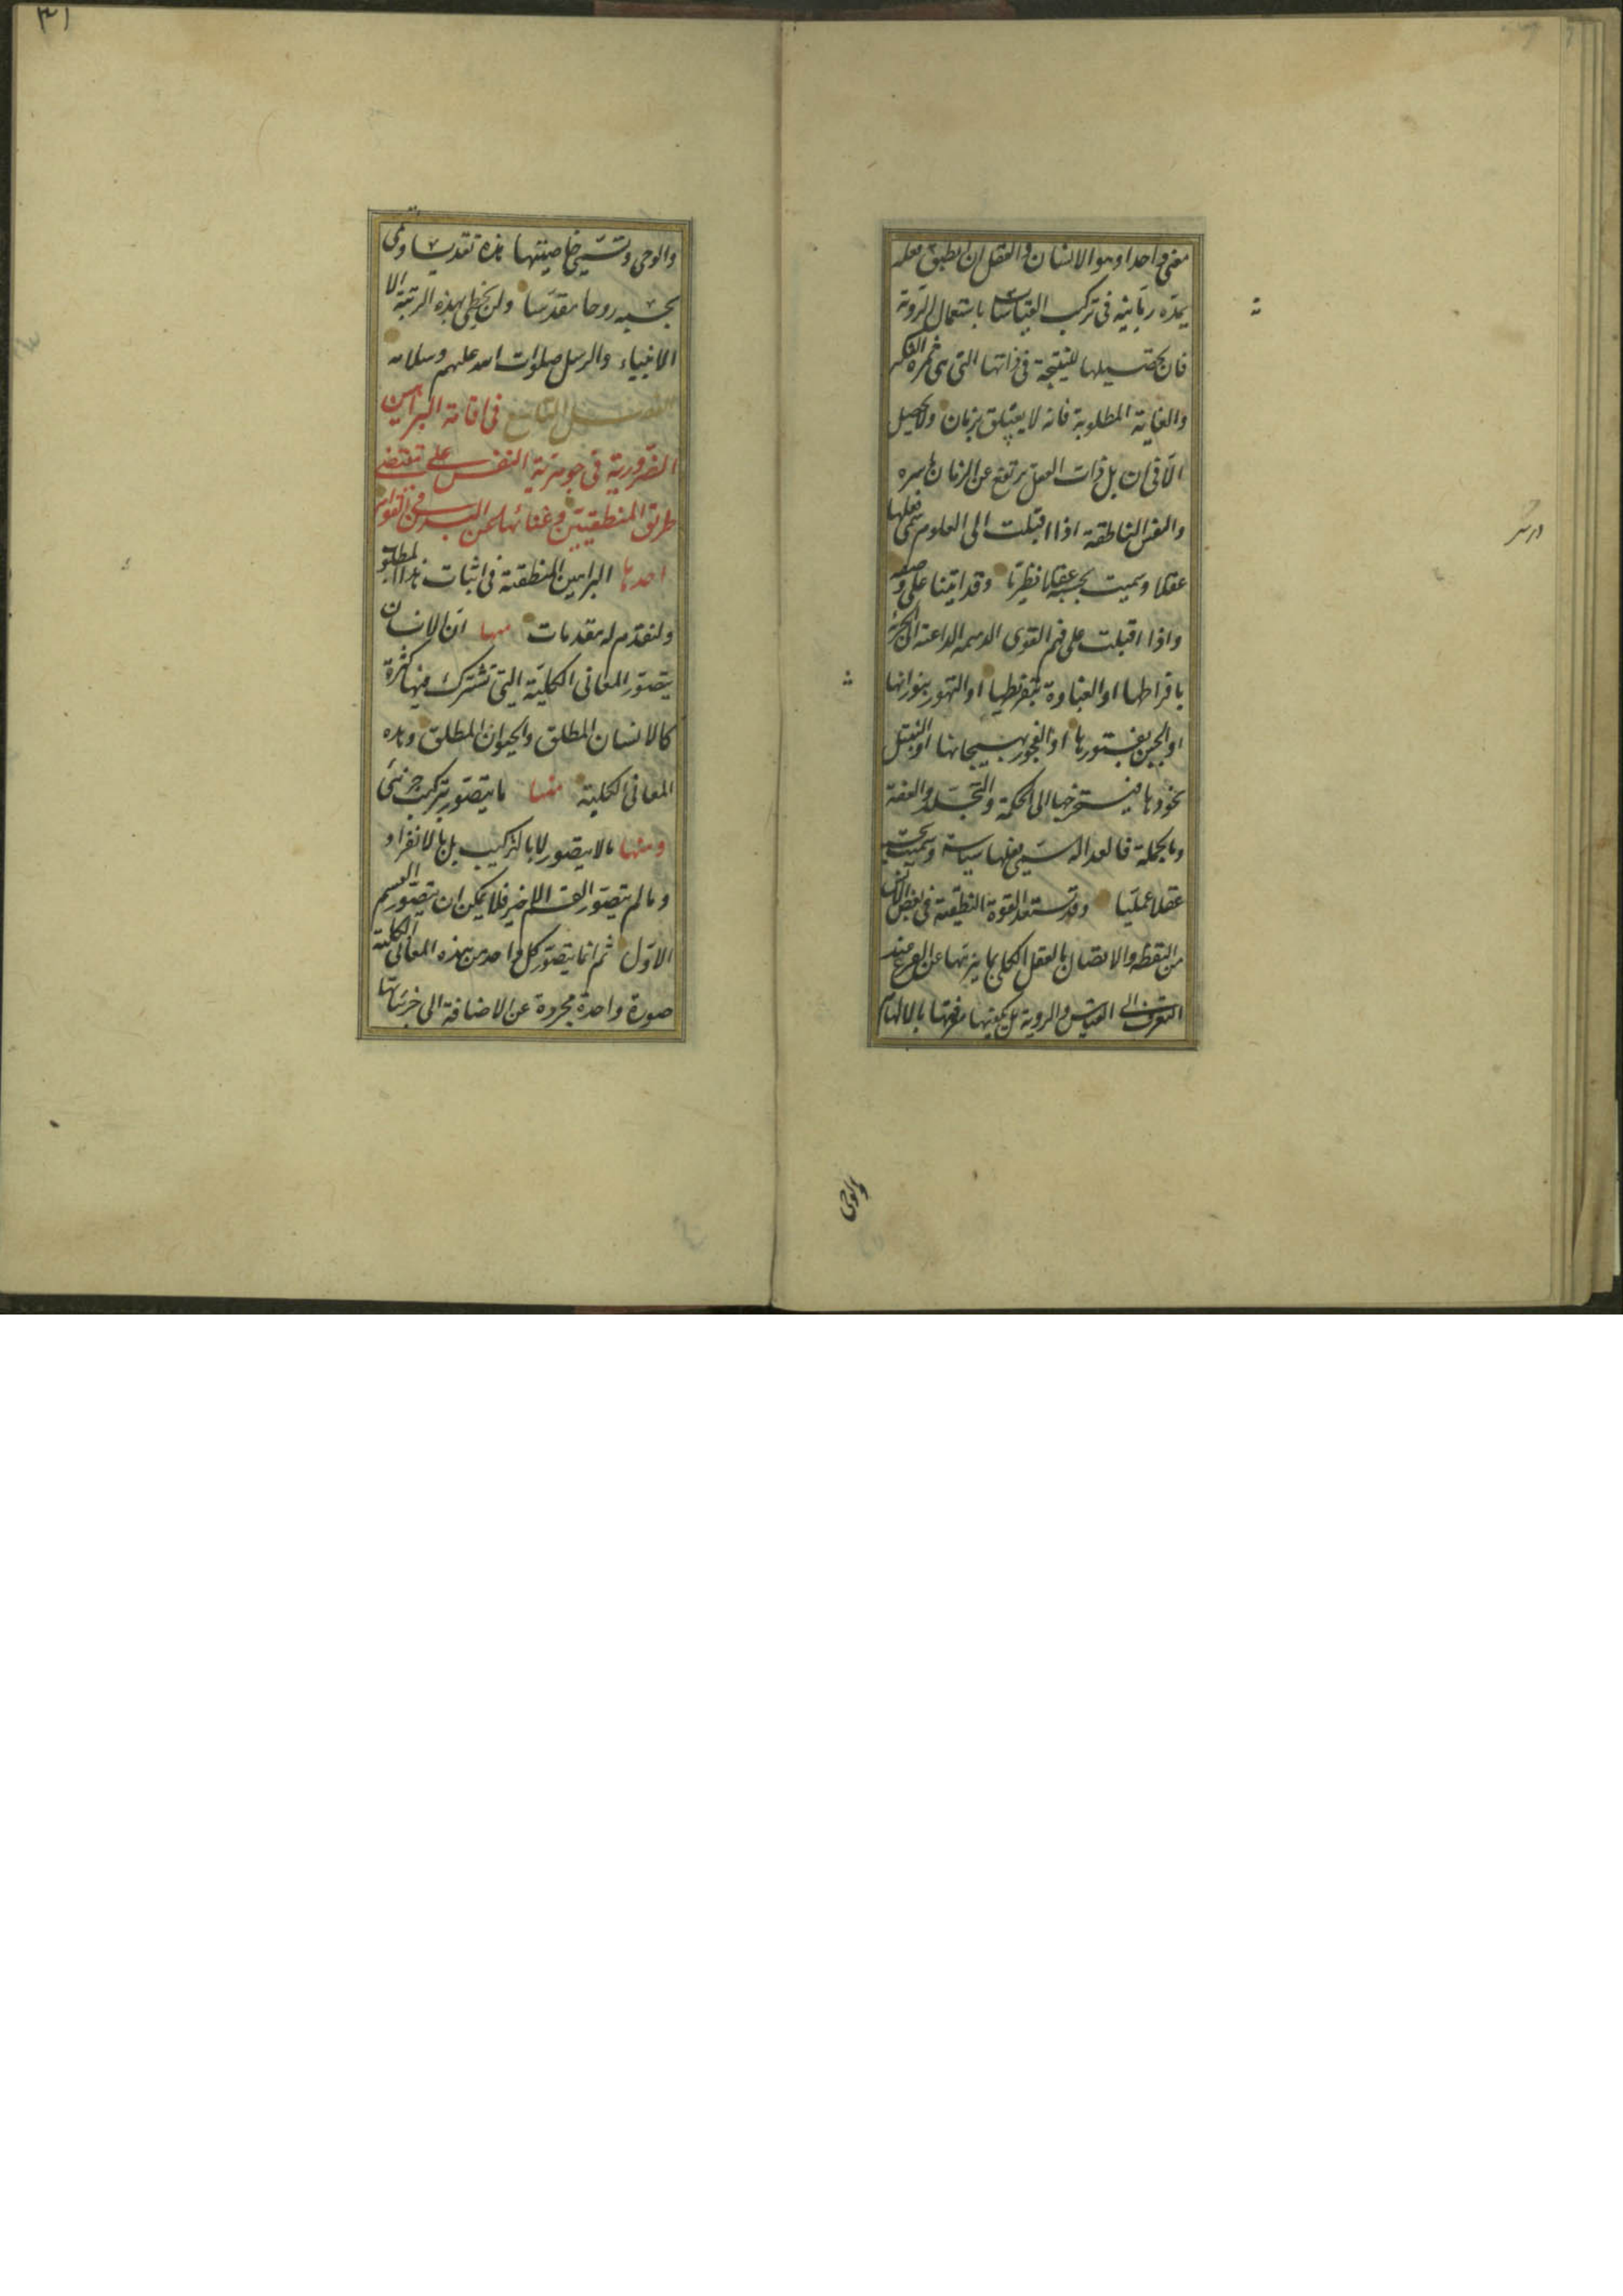 معنى واحدا وهو الانسان والعقل ان انطبق فعله
بمدة زمانية فى تركيب القياسات باستعمال الروية
فان تحصيلها للنتيجة فى ذاتها التى هى ثمرة الفكر
والغاية المطلوبة فانه لا يتعلق بزمان ولا يحصل
الا فى آن بل ذات العقل يرتفع عن الزمان باسره
والنفس الناطقة اذا اقبلت الى العلوم سمى فعلها
عقلا وسميت بحسبه عقلا نظريا وقد اتينا على وصفه
واذا اقبلت على قهر القوى الذميمة الداعية الى الجربزة
بافراطها او الغباوة بتفريطها او التهور بثورانها
او الجبن بفتورها او الفجور بهيجانها او
بخمودها فيستخرجها الى الحكمة والتجلد والعفة
وبالجملة فالعدالة سمى فعلها سياسة وسميت بحسبه
عقلا عمليا وقد تستعد القوة النطقية فى بعض الناس
من اليقظة والاتصال بالعقل الكلى بما ينزهها عن الفزع عند
التعرف الى القياس والروية بل يكفيها مؤنتها بالالهام
والوحى
والوحى وتسمى خاصيتها هذه تقديسا وتسمى
بحسبه روحا مقدسا ولن يحظى بهذه الرتبة الا
الانبياء والرسل صلوات الله عليهم وسلامه
الفصل التاسع فى اقامة البراهين
الضرورية فى جوهرية النفس على مقتضى
طريق المنطقيين وغنائها عن البدن فى القوام
احدها البراهين المنطقية فى اثبات هذا المطلوب
ولنقدم له مقدمات منها ان الانسان
يتصور المعانى الكلية التى تشترك فيها كثرة
كالانسان المطلق والحيوان المطلق وهذه
المعانى الكلية منها ما يتصور بتركيب جزئى
ومنها ما لا يتصور لا بالتركيب بل بالانفراد
وما لم يتصور القسم الاخير فلا يمكن ان يتصور القسم
الاول ثم انما يتصور كل واحد من هذه المعانى الكلية
صورة واحدة مجردة عن الاضافة الى جزئياتها